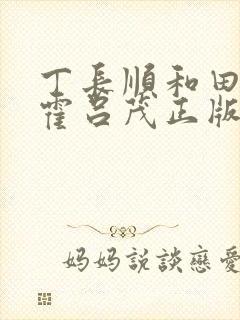 丁長順和田
霍呂茂正版
妈妈説談戀愛